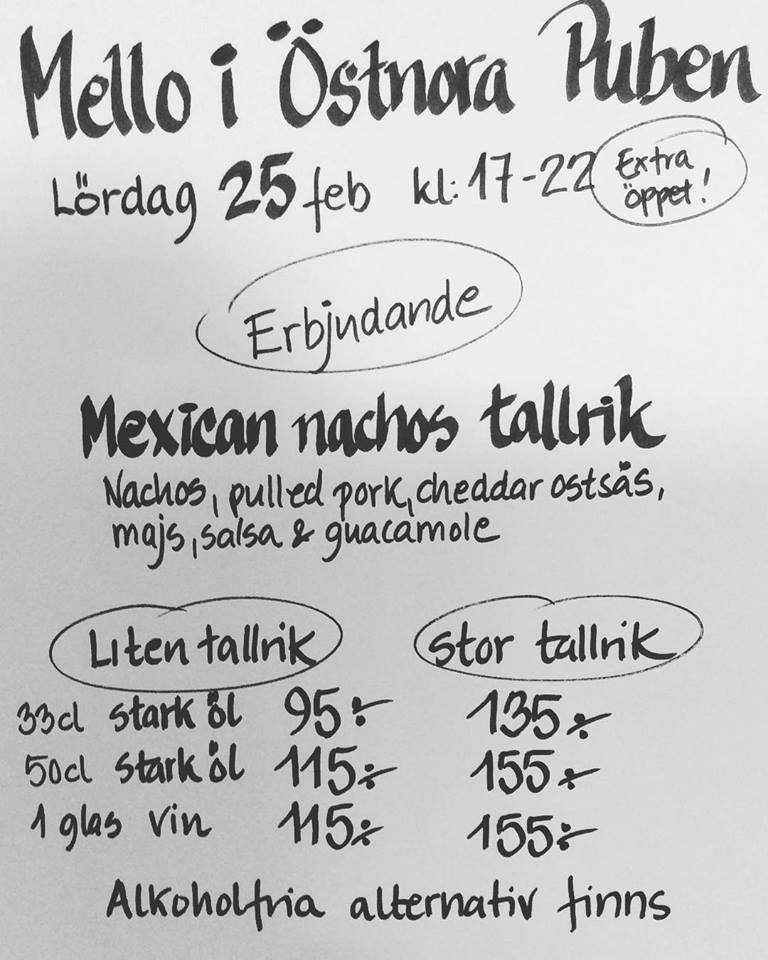 Mello i Östnora Puben
Lördag 25 feb kl: 17-22 Extra öppet!
Erbjudande
Mexican nachos tallrik
Nachos, pulled pork, cheddar ostsås,
majs, salsa & guacamole
Liten tallrik stor tallrik
33cl stark öl 95:- 135:-
50cl stark öl 115:- 155:-
1 glas vin 115:- 155:-
Alkoholfria alternativ finns